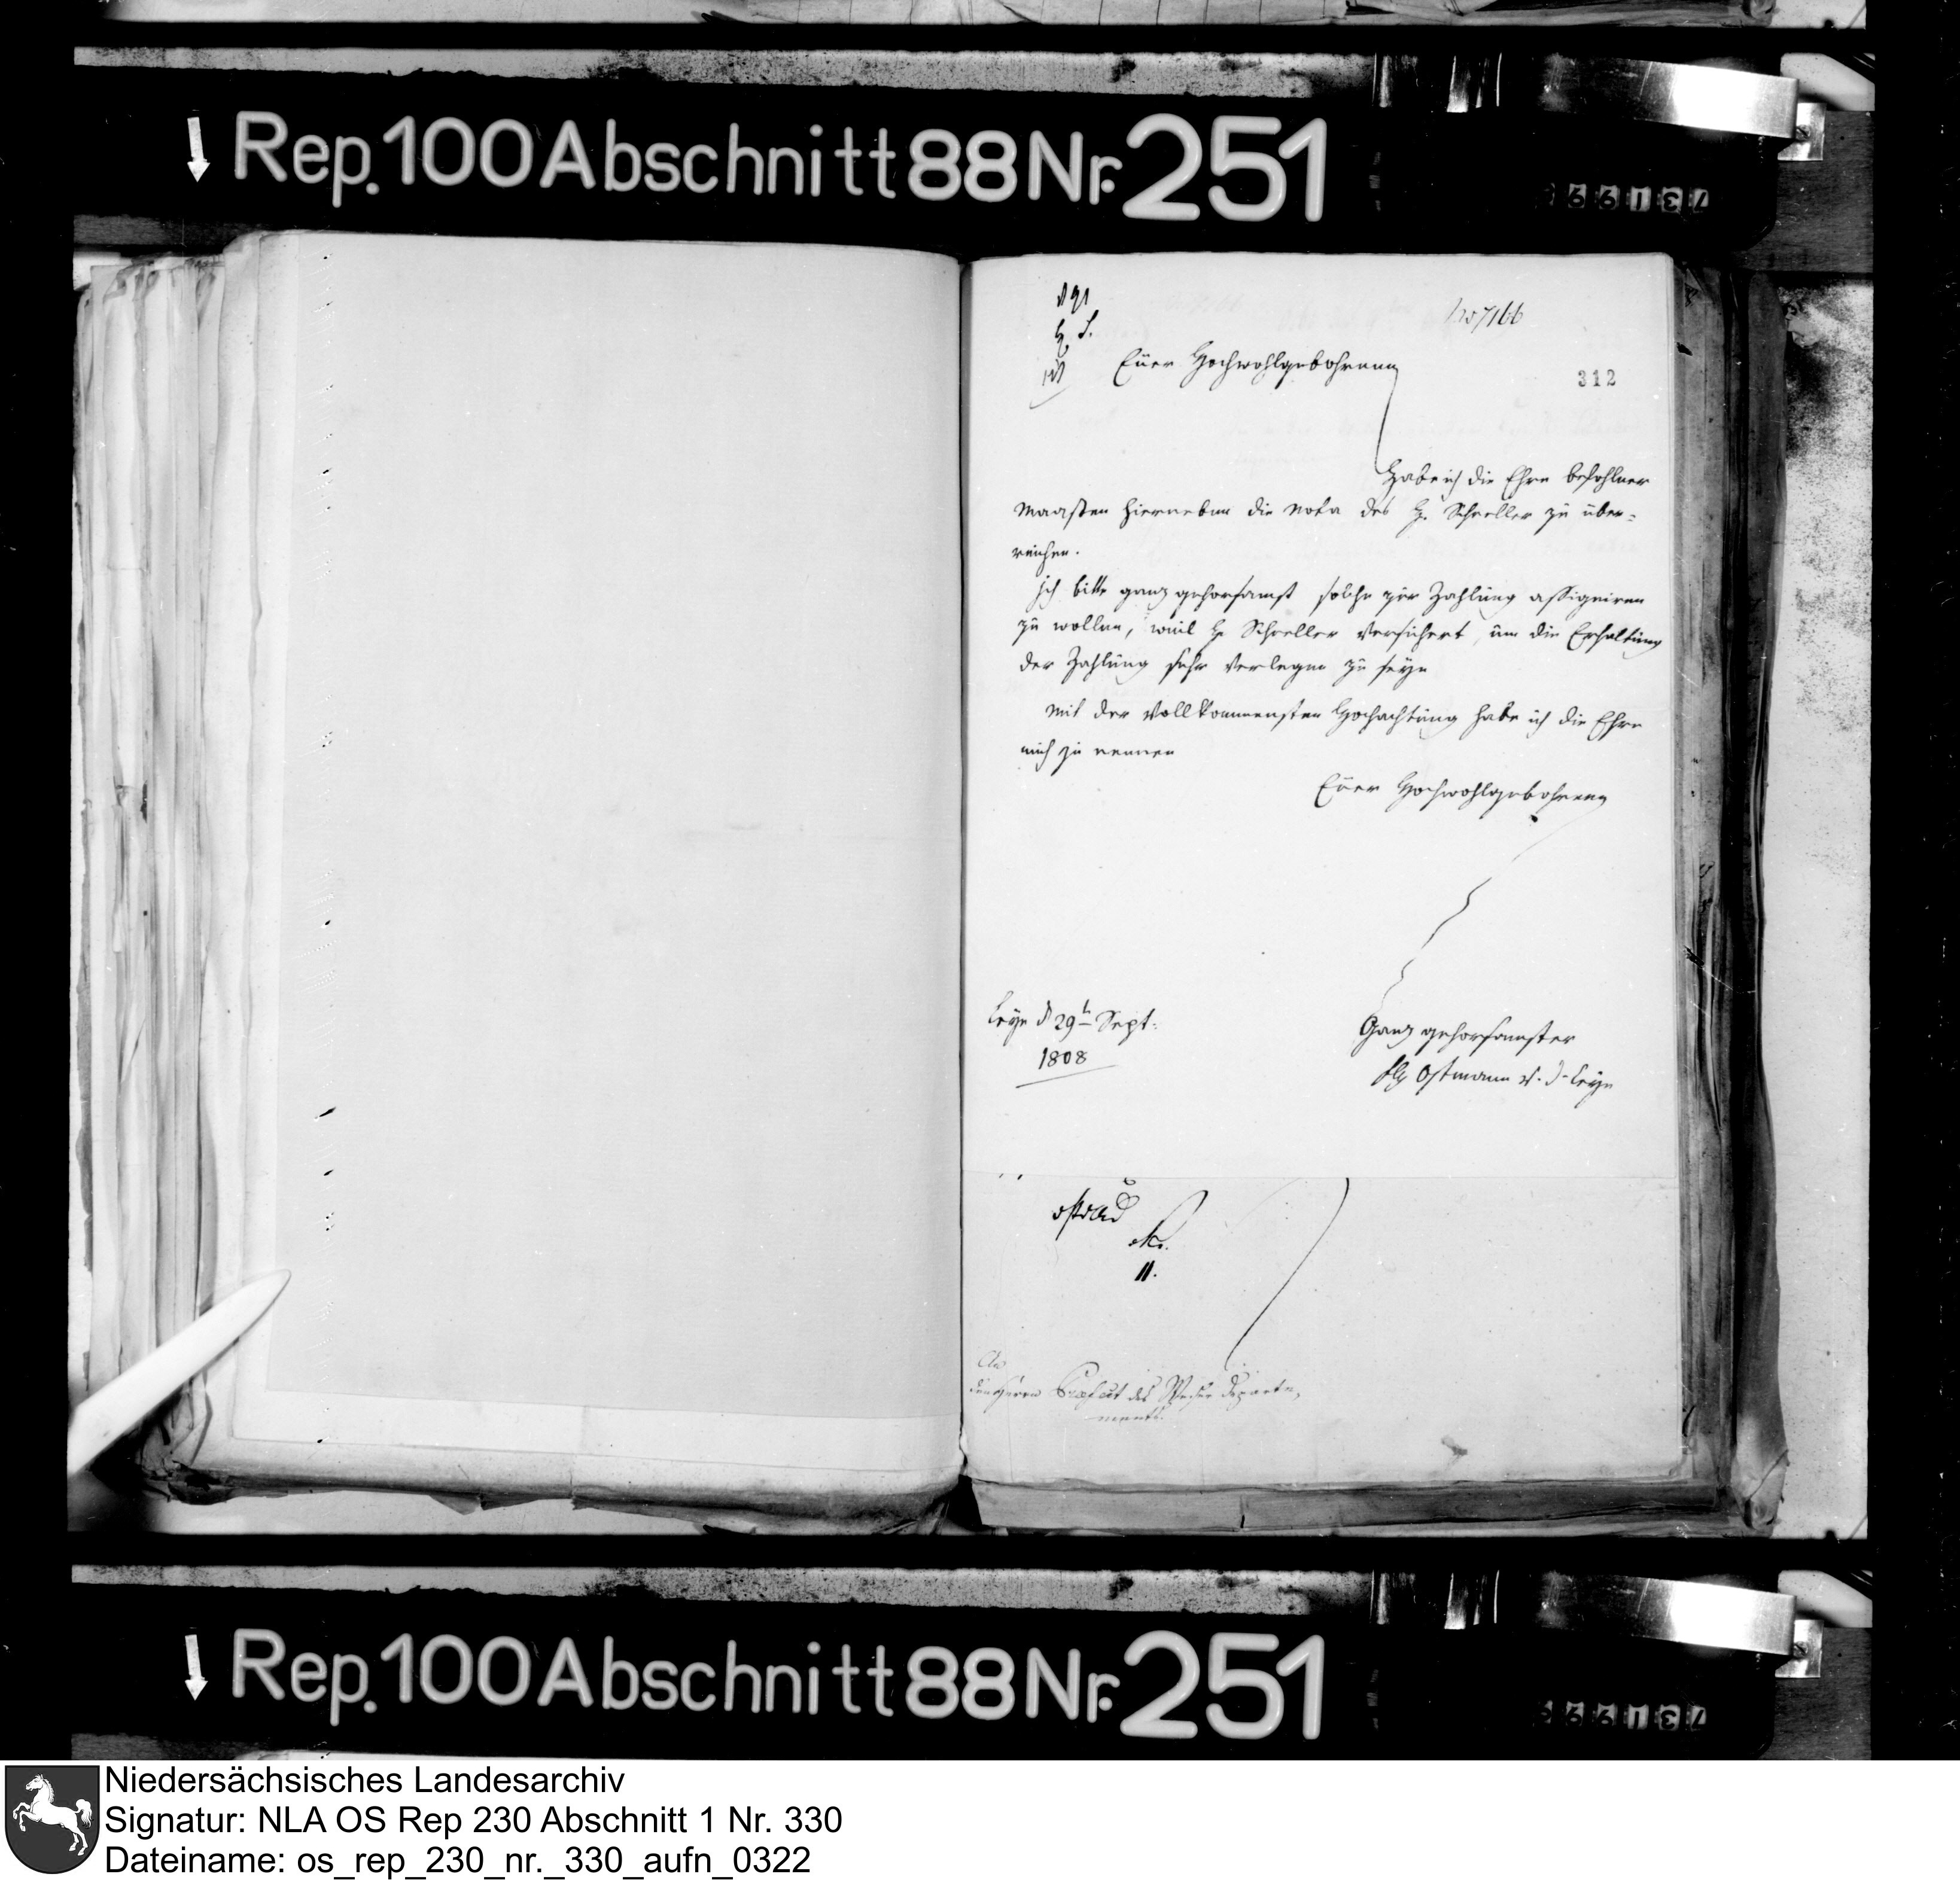 Rep. 100 Abschnitt 88 Nr. 251
No 7166
Euer Hochwohlgebohren
312
Habe ich die Ehre befohlner
Maasten hierneben die Nota des H. Schreller zu über=
reichen.
Ich bitte ganz gehorsamst solche zur Zahlung assigniren
zu wollen, weil H. Schreller versichert, um die Erhaltung
der Zahlung sehr verlegen zu seyn
Mit der Vollkommensten Hochachtung habe ich die Ehre
mich zu nennen
Euer Hochwohlgebohren
Leye d 29t Sept:
1808
Ganz gehorsamster
Ostmann v. d. Leye
An
den Herrn Präfect des Weser Departe,
ments.
Rep. 100 Abschnitt 88 Nr. 251
Niedersächsisches Landesarchiv
Signatur: NLA OS Rep 230 Abschnitt 1 Nr. 330
Dateiname: os_rep_230_nr._330_aufn_0322